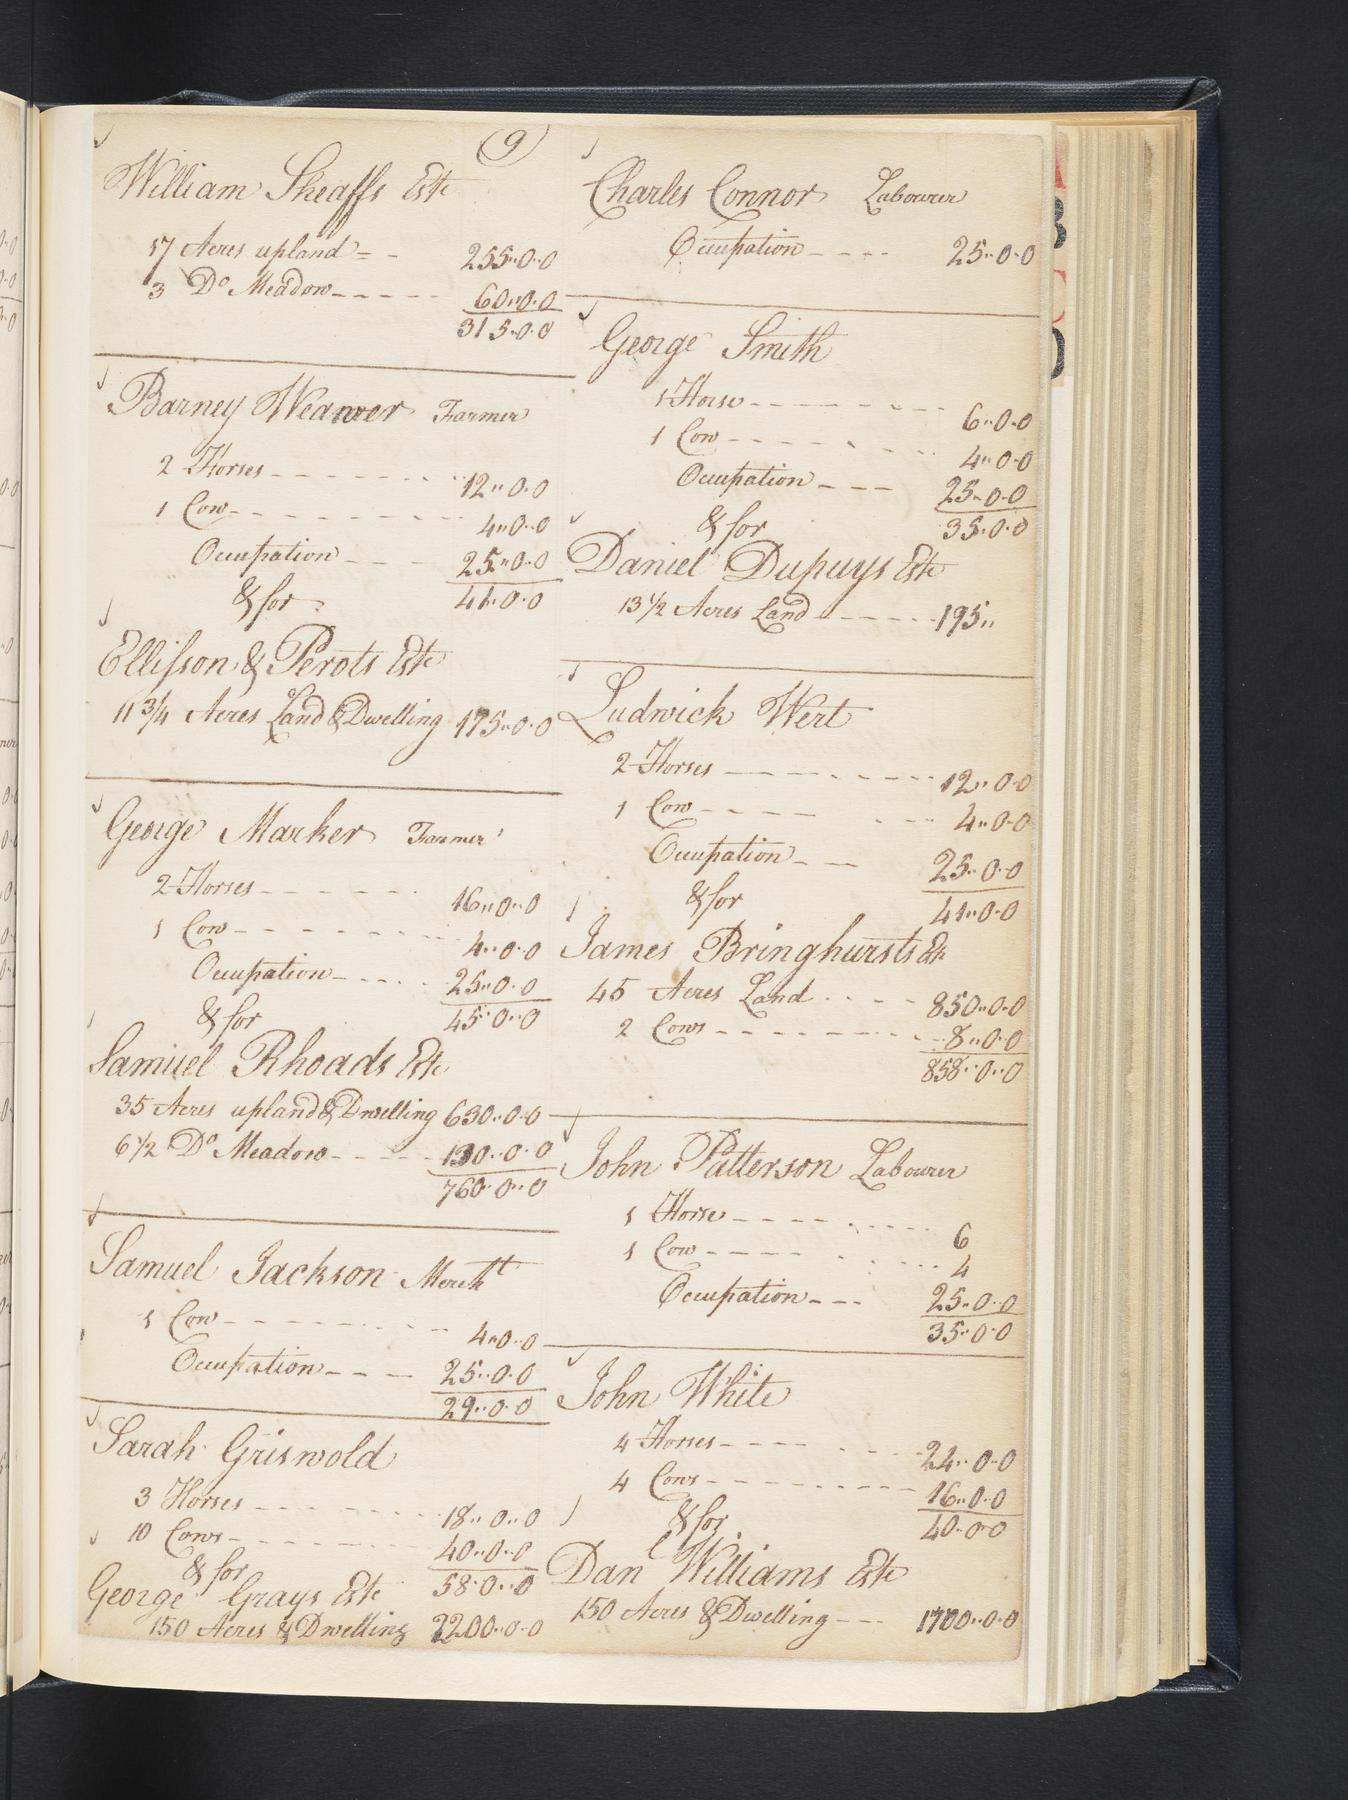 (9)
William Sheaffs Este
17 Acres upland = - 255..0..0
3 Do Meadow - - - - - 60..0..0
315..0..0
Barney Weawer Farmer
2 Horses - - - - - - - 12..0..0
1 Cow - - - - - - - - 4..0..0
Occupation - - - 25..0..0
& for 41..0..0
Ellisson & Perots Este
11 3/4 Acres Land & Dwelling 175..0..0
George Marker Farmer
2 Horses - - - - - - 16..0..0
1 Cow - - - - - - - 4..0..0
Occupation - - - - 25..0..0
& for 45..0..0
Samuel Rhoads Este
35 Acres upland & Dwelling 630..0..0
6 1/2 Do Meadow - - - - 130..0..0
760..0..0
Samuel Jackson Mercht
1 Cow - - - - - - - - 4..0..0
Occupation - - - 25..0..0
29..0..0
Sarah Griswold
3 Horses - - - - - - - 18..0..0
10 Cows - - - - - - - 40..0..0
& for 58..0..0
George Grays Este
150 Acres & Dwelling 2200..0..0
Charles Connor Labourer
Occupation - - - - 25..0..0
George Smith
1 Horse - - - - - - - - 6..0..0
1 Cow - - - - - - - 4..0..0
Occupation - - - 25..0..0
& for 35..0..0
Daniel Dupuys Este
13 1/2 Acres Land - - - - - - 195..
Ludwick Wert
2 Horses - - - - - - - 12..0..0
1 Cow - - - - - - - 4..0..0
Occupation - - - 25..0..0
& for 41..0..0
James Bringhursts Este
45 Acres Land - - - - 850..0..0
2 Cows - - - - - - - - 8..0..0
858..0..0
John Patterson Labourer
1 Horse - - - - - - - - 6
1 Cow - - - - - - - 4
Occupation - - - 25..0..0
35..0..0
John White
4 Horses - - - - - - - 24..0..0
4 Cows - - - - - - - - 16..0..0
& for 40..0..0
Dan l Williams Este
150 Acres & Dwelling - - - 1700..0..0